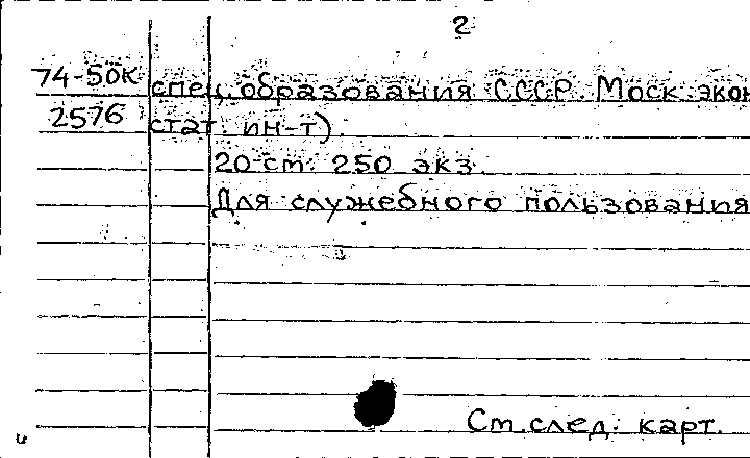 2
74-50к спец. образования СССР. Моск. экон
2576 стат. ин-т).
20 ст. 250 экз.
Для служебного пользования
Ст. след. карт.
и